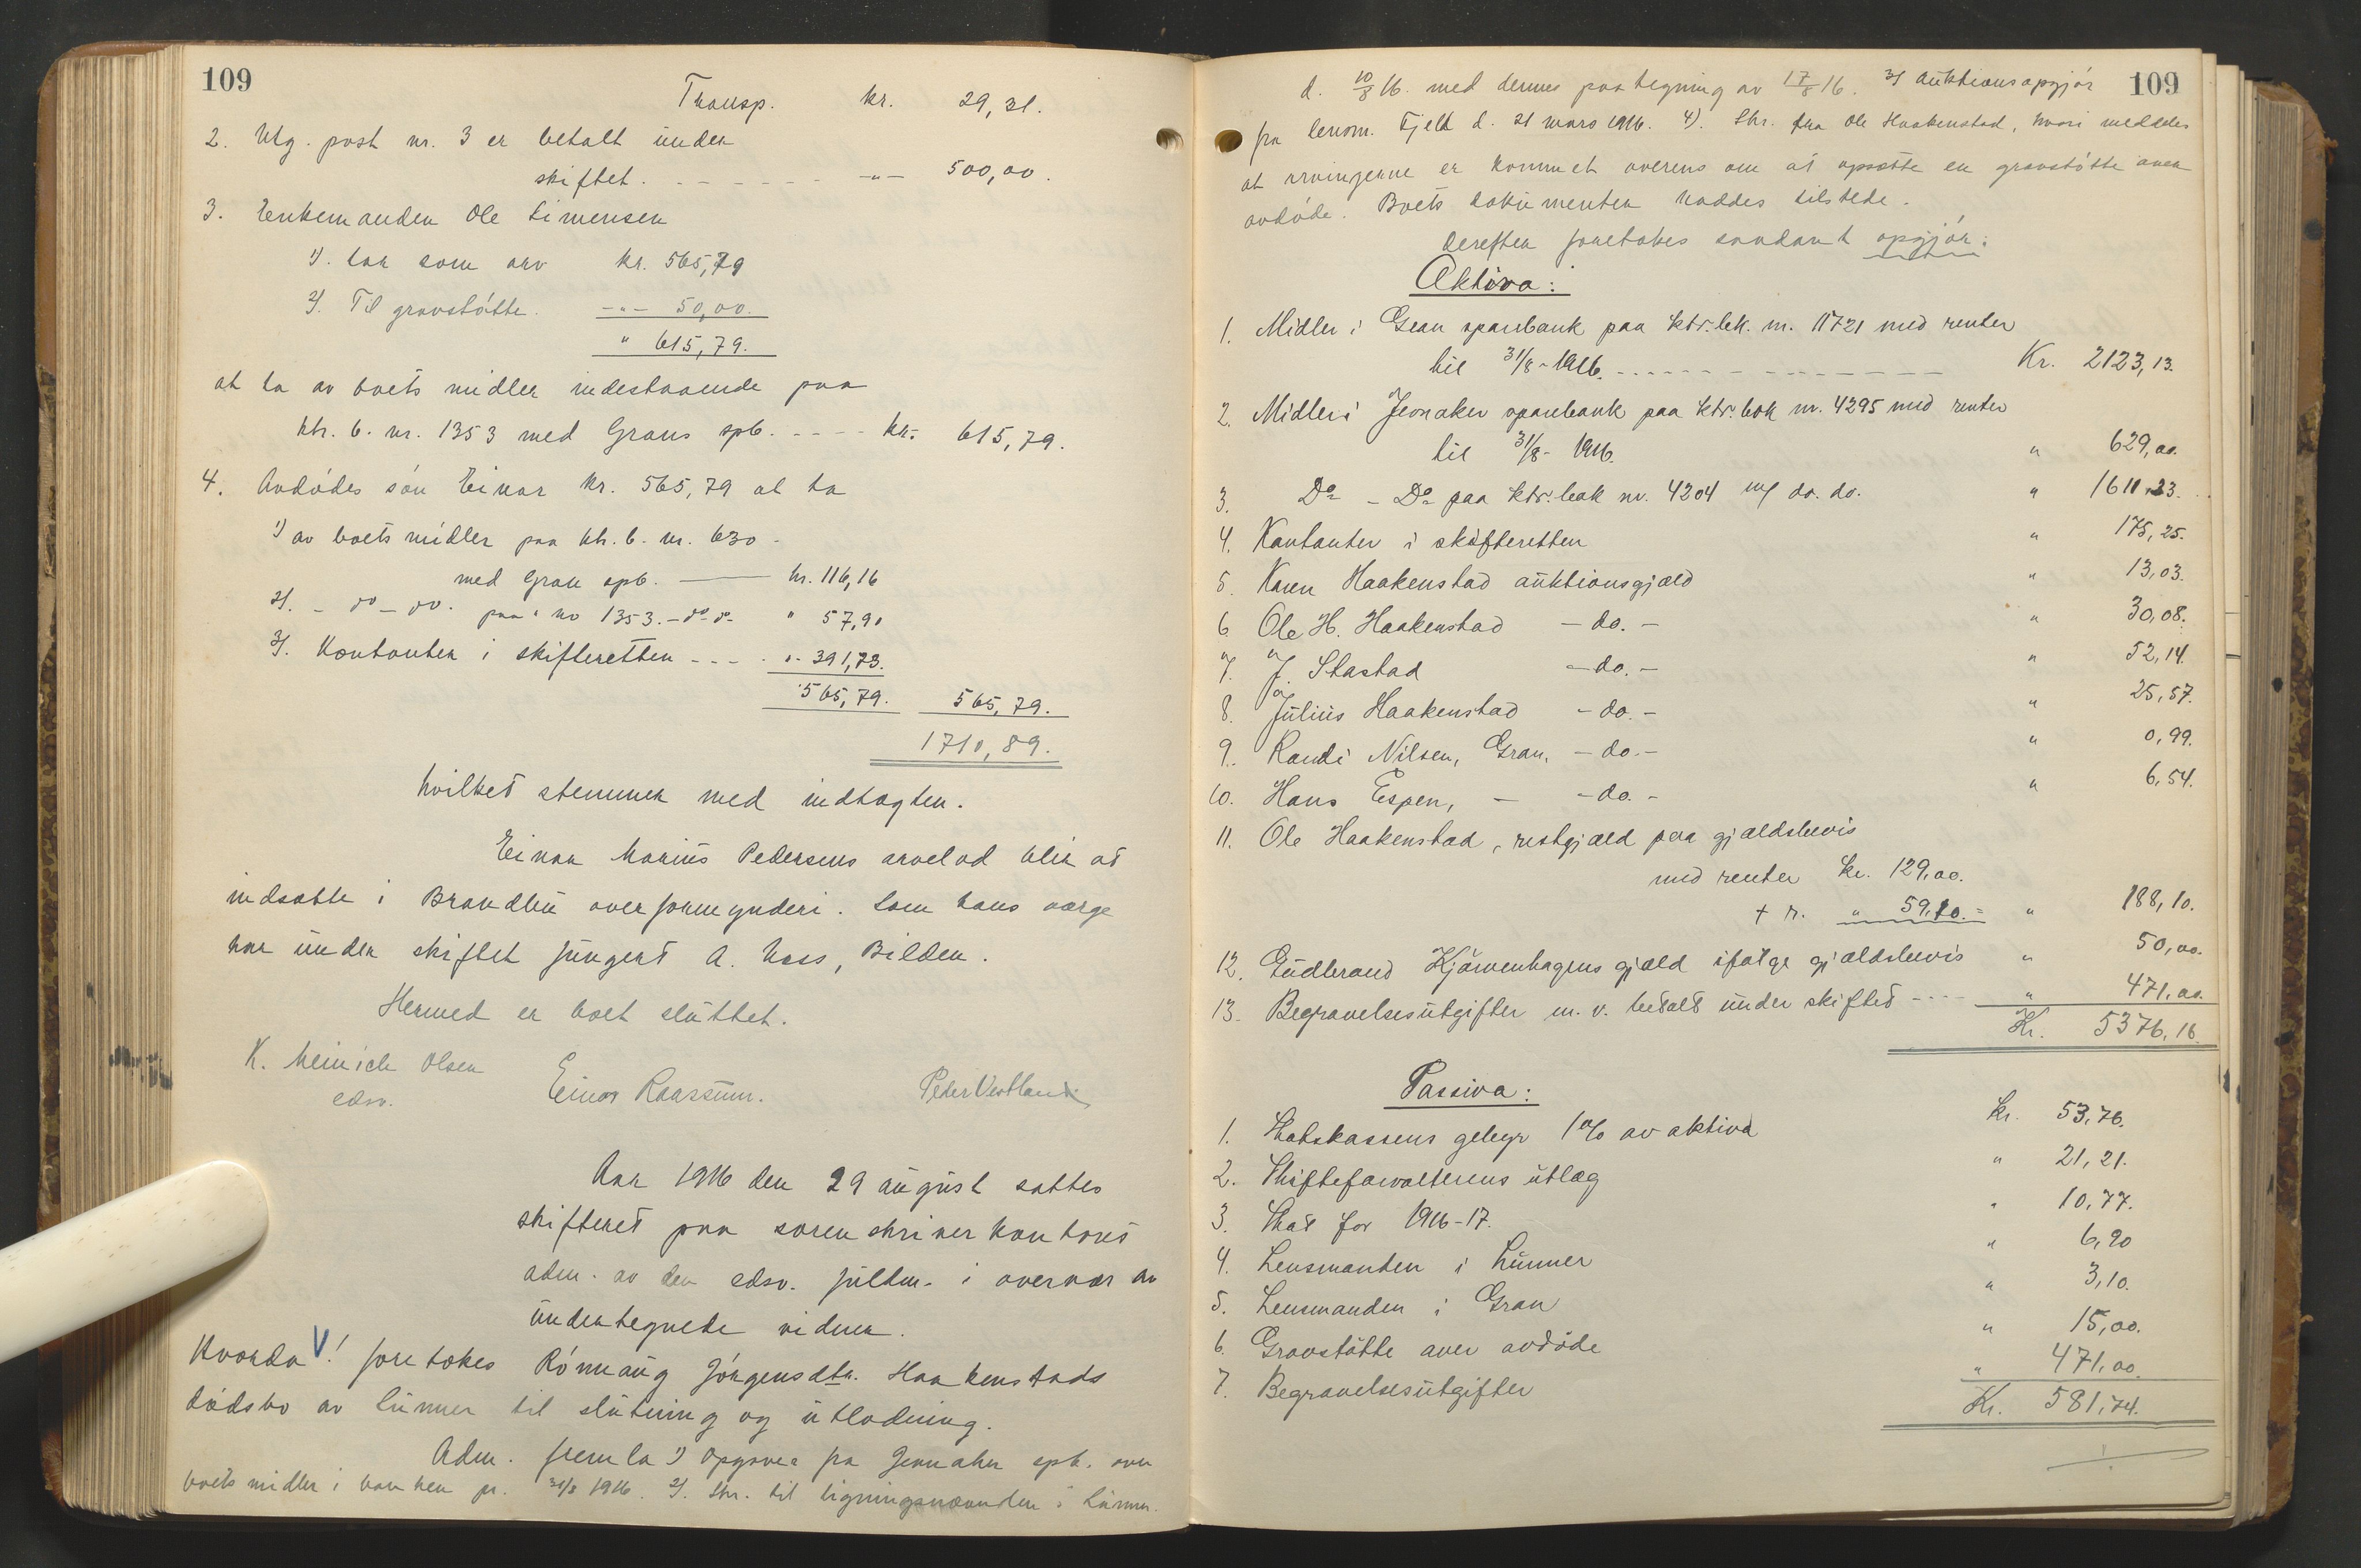 109
Transp. kr. 29,31.
2. Utg. post nr. 3 er betalt under
skiftet. - - - - - - -"- 500,00.
3. Enkemanden Ole Simensen
1). tar som arv kr. 565,79
2). Til gravstøtte. -"- 50,00.
" 615,79.
at ta av boets midler indestaaende paa
ktr. b. nr. 1353 med Grans spb. - - - - kr. 615,79.
4. Avdødes søn Einar kr. 565,79 at ta
1) av boets midler paa ktr. b. nr. 630 -
med Gran spb. — kr. 116,16
2). - do - do. paa " no 1353. - do - do - " 57,90
3). Kontanter i skifteretten - - - . "- 391,73.
565,79. 565,79.
1710,89.
hvilket stemmer med indtægten.
Einar Marius Pedersens arvelod blir at
indsætte i Brandbu overformynderi. Som hans værge
har under skiftet fungert A. Næss, Bilden.
Hermed er boet sluttet.
K. Meinich Olsen
edsv.
Einar Raassum.
Peder Vestland
Aar 1916 den 29 august sattes
skifteret paa sorenskriverkontoret
adm. av den edsv. fuldm. i overvær av
undertegnede vidner.
Hvorda V! foretokes Rønnaug Jørgensdtr. Haakenstads
dødsbo av Lunner til slutning og utlodning.
Adm. fremla 1) Opgave fra Jevnaker spb. over
boets midler i banken pr. 31/8 1916. 2). Skr. til ligningsnævnden i Lunner.
109
d. 10/8 16. med dennes paategning av 17/8 16. 3) Auktionsopgjør
fra lensm. Fjeld d. 21 mars 1916. 4). Skr. fra Ole Haakenstad, hvori meddeles
at arvingerne er kommet overens om at opsætte en gravstøtte over
avdøde. Boets dokumenter haddes tilstede.
Derefter foretokes saadant opgjør:
Aktiva:
1. Midler i Gran sparebank paa ktr. bok nr. 11721 med renter
til 31/8 - 1916. - - - - - - - - - - Kr. 2123,13.
2. Midler i Jevnaker sparebank paa ktr. bok nr. 4295 med renter
til 31/8 - 1916. " 629,00.
3. Do - Do paa ktr. bok nr. 4204 m/ do. do. " 1611,33.
4. Kontanter i skifteretten " 175,25.
5. Karen Haakenstad auktionsgjæld " 13,03.
6. Ole H. Haakenstad - do. - " 30,08.
7. J. Stastad - do. - " 52,14.
8. Julius Haakenstad - do. - " 25,57.
9. Randi Nilsen, Gran, - do. - " 0,99.
10. Hans Espen, — - do. - " 6,54.
11. Ole Haakenstad, restgjæld paa gjældsbevis
med renter kr. 129,00.
+ r. " 59,10. = " 188,10.
12. Gudbrand Kjørvenhagens gjæld ifølge gjældsbevis " 50,00.
13. Begravelsesutgifter m. v. betalt under skiftet - - - - " 471,00.
Kr. 5376,16.
Passiva:
1. Statskassens gebyr 1 % av aktiva kr. 53,76.
2. Skifteforvalterens utlæg " 21,21.
3. Skat for 1916-17. " 10,77.
4. Lensmanden i Lunner " 6,90
5. Lensmanden i Gran " 3,10.
6. Gravstøtte over avdøde " 15,00.
7. Begravelsesutgifter " 471,00.
Kr. 581,74.